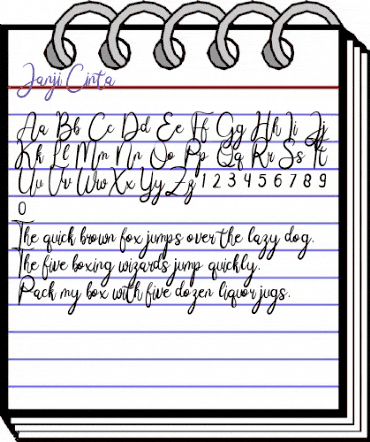 Janji Cinta
Aa Bb Cc Dd Ee Ff Gg Hh Ii Jj
Kk Ll Mm Nn Oo Pp Qq Rr Ss Tt
Uu Vv Ww Xx Yy Zz 1 2 3 4 5 6 7 8 9
0
The quick brown fox jumps over the lazy dog.
The five boxing wizards jump quickly.
Pack my box with five dozen liquor jugs.